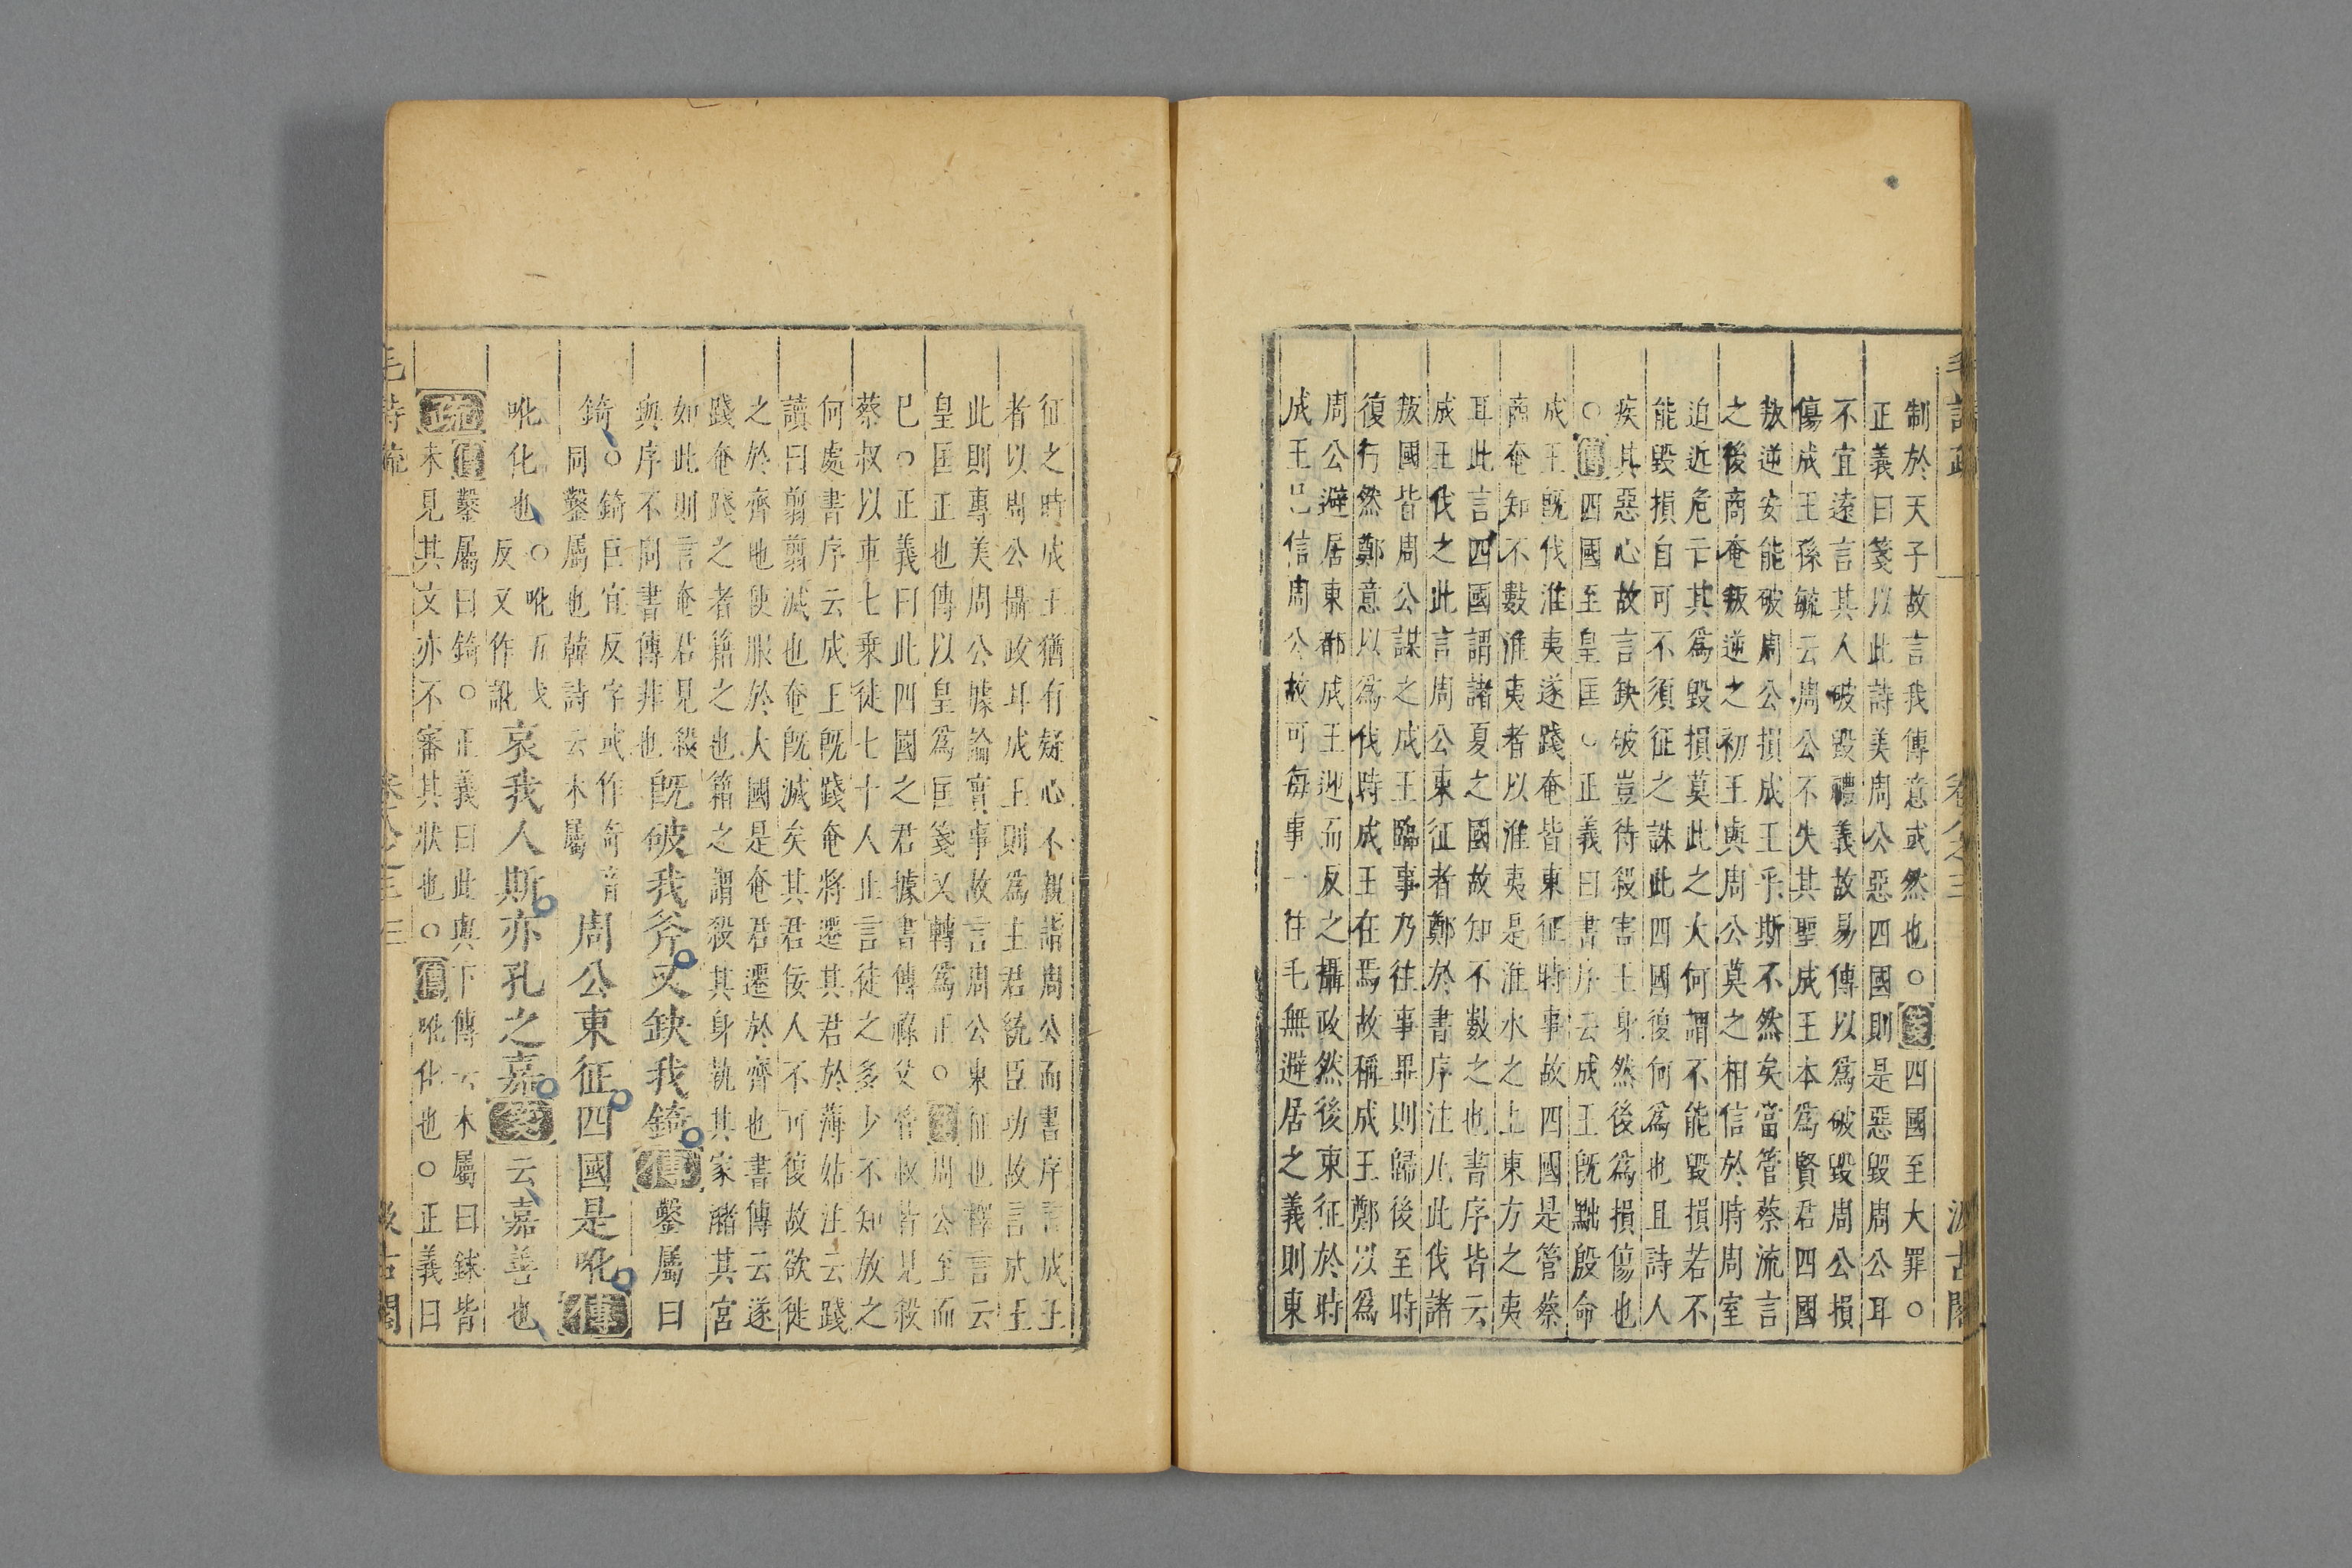 毛詩疏 卷八之三 汲古閣
制於天子故言我傳意或然也○箋四國至大罪○
正義曰箋以此詩美周公惡四國則是惡毀周公耳
不宜遠言其人破毀禮義故易傳以爲破毀周公損
傷成王孫毓云周公不失其聖成王本爲賢君四國
叛逆安能破周公損成王乎斯不然矣當管蔡流言
之後商奄叛逆之初王與周公莫之相信於時周室
迫近危亡其爲毀損莫此之大何謂不能毀損若不
能毀損自可不須征之誅此四國復何爲也且詩人
疾其惡心故言缺破豈待殺害王身然後爲損傷也
○傳四國至皇匡○正義曰書序云成王旣黜殷命
成王旣伐淮夷遂踐奄皆東征時事故四國是管蔡
商奄知不數淮夷者以淮夷是淮水之上東方之夷
耳此言四國謂諸夏之國故知不數之也書序皆云
成王伐之此言周公東征者鄭於書序注凡此伐諸
叛國皆周公謀之成王臨事乃往事畢則歸後至時
復行然鄭意以爲伐時成王在焉故稱成王鄭以爲
周公避居東都成王迎而反之攝政然後東征於時
成王已信周公故可每事一往毛無避居之義則東
征之時成王猶有疑心不親詣周公而書序言成王
者以周公攝政耳成王則爲主君統臣功故言成王
此則專美周公據論實事故言周公東征也釋言云
皇匡正也傳以皇爲匡箋又轉爲正○箋周公至而
已○正義曰此四國之君據書傳祿父管叔皆見殺
蔡叔以車七乗徒七十人止言徒之多少不知放之
何處書序云成王旣踐奄將遷其君於薄姑注云踐
讀曰翦翦滅也奄旣滅矣其君佞人不可復故欲徙
之於齊地使服於大國是奄君遷於齊也書傳云遂
踐奄踐之者籍之也籍之謂殺其身執其家瀦其宮
如此則言奄君見殺
與序不同書傳非也旣破我斧又缺我錡傳鑿屬曰
錡○錡巨宜反字或作奇音
同鑿屬也韓詩云木屬周公東征四國是吪傳
吪化也○吪五戈
反又作訛哀我人斯亦孔之嘉箋云嘉善也
疏傳鑿屬曰錡○正義曰此與下傳云木屬曰銶皆
未見其文亦不審其狀也○傳吪化也○正義曰
毛詩疏 卷八之三 三 汲古閣